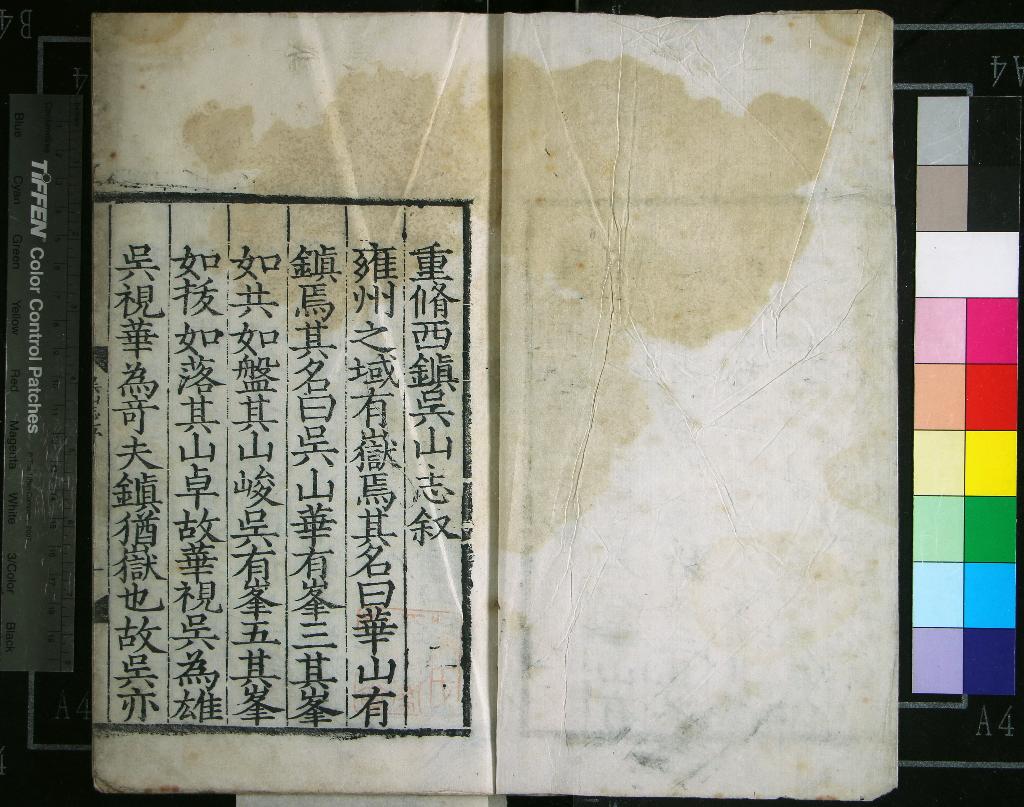 重脩西鎭吳山志叙
雍州之域有嶽焉其名曰華山有
鎭焉其名曰吳山華有峯三其峯
如共如盤其山峻吳有峯五其峯
如拔如落其山卓故華視吳為雄
吳視華為竒夫鎭猶嶽也故吳亦
TIFFEN Color Control Patches
Blue Cyan Green Yellow Red Magenta White 3/Color Black
A4
A4